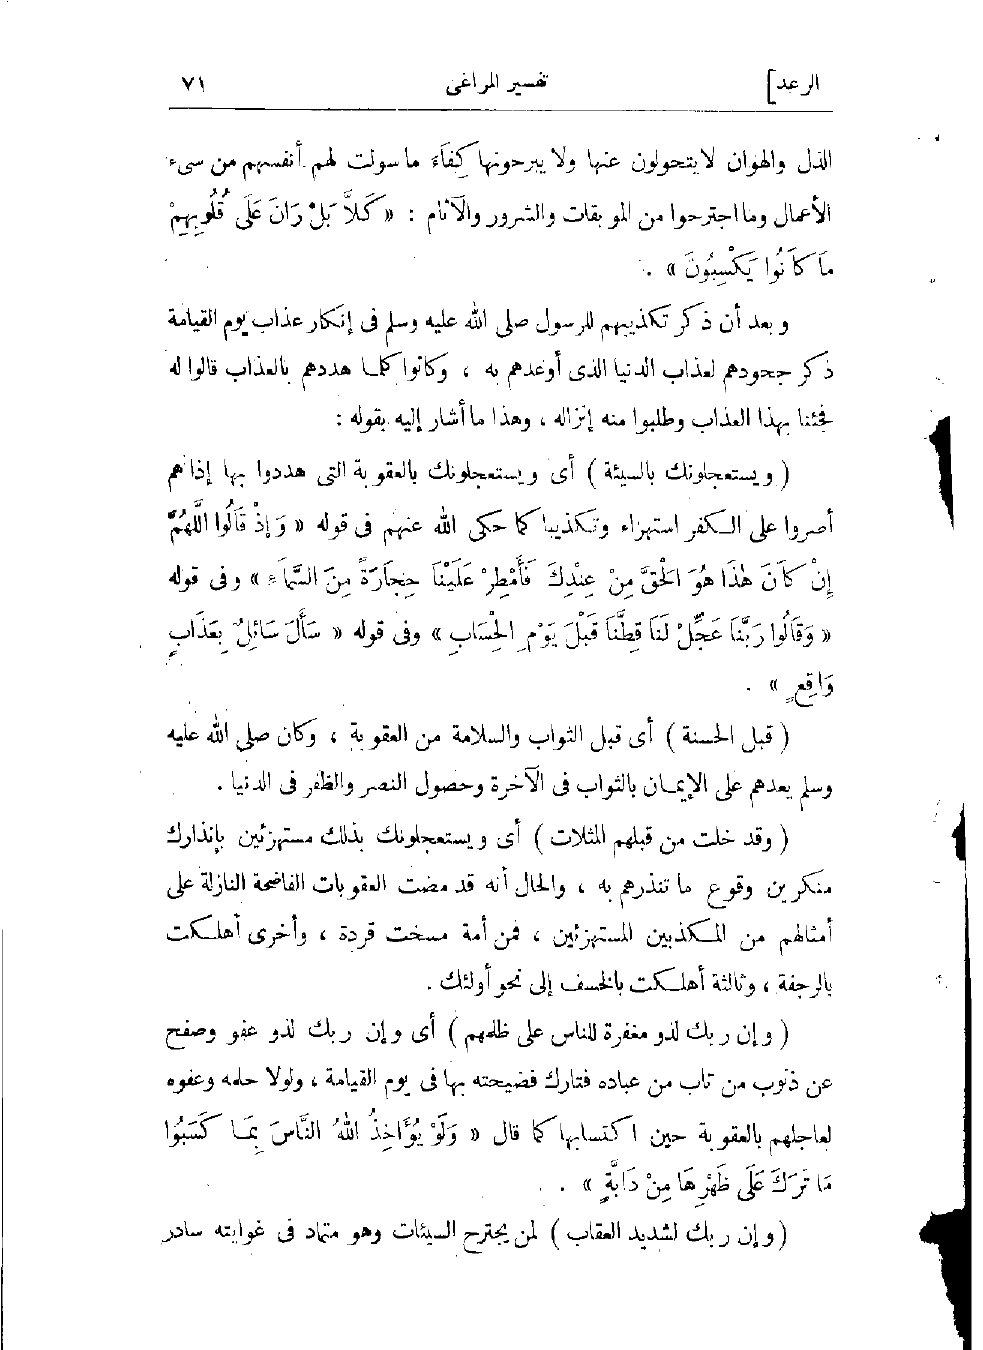 الرعد]
تفسير المراغى
٧١
الذل والهوان لا يتحولون عنها ولا يبرحونها كِفَاءَ ما سولت لهم أنفسهم من سىء
الأعمال وما اجترحوا من الموبقات والشرور والآثام : « كَلاَّ بَلْ رَانَ عَلَى قُلُوبِهِمْ
مَا كَانُوا يَكْسِبُونَ » .
وبعد أن ذكر تكذيبهم للرسول صلى الله عليه وسلم فى إنكار عذاب يوم القيامة
ذكر جحودهم لعذاب الدنيا الذى أوعدهم به ، وكانوا كلما هددهم بالعذاب قالوا له
فجئنا بهذا العذاب وطلبوا منه إنزاله ، وهذا ما أشار إليه بقوله :
( ويستعجلونك بالسيئة ) أى ويستعجلونك بالعقوبة التى هددوا بها إذا هم
أصروا على الكفر استهزاء وتكذيبا كما حكى الله عنهم فى قوله « وَإِذْ قَالُوا اللَّهُمَّ
إِنْ كَانَ هٰذَا هُوَ الْحَقَّ مِنْ عِنْدِكَ فَأَمْطِرْ عَلَيْنَا حِجَارَةً مِنَ السَّمَاءِ » وفى قوله
« وَقَالُوا رَبَّنَا عَجِّلْ لَنَا قِطَّنَا قَبْلَ يَوْمِ الْحِسَابِ » وفى قوله « سَأَلَ سَائِلٌ بِعَذَابٍ
وَاقِعٍ » .
( قبل الحسنة ) أى قبل الثواب والسلامة من العقوبة ، وكان صلى الله عليه
وسلم يعدهم على الإيمان بالثواب فى الآخرة وحصول النصر والظفر فى الدنيا .
( وقد خلت من قبلهم المثلات ) أى ويستعجلونك بذلك مستهزئين بإنذارك
منكرين وقوع ما تنذرهم به ، والحال أنه قد مضت العقوبات الفاضحة النازلة على
أمثالهم من المكذبين المستهزئين ، فمن أمة مسخت قردة ، وأخرى أهلكت
بالرجفة ، وثالثة أهلكت بالخسف إلى نحو أولئك .
( وإن ربك لذو مغفرة للناس على ظلمهم ) أى وإن ربك لذو عفو وصفح
عن ذنوب من تاب من عباده فتارك فضيحته بها فى يوم القيامة ، ولولا حلمه وعفوه
لعاجلهم بالعقوبة حين اكتسابها كما قال « وَلَوْ يُؤَاخِذُ اللهُ النَّاسَ بِمَا كَسَبُوا
مَا تَرَكَ عَلَى ظَهْرِهَا مِنْ دَابَّةٍ » .
( وإن ربك لشديد العقاب ) لمن يجترح السيئات وهو متماد فى غوايته سادر